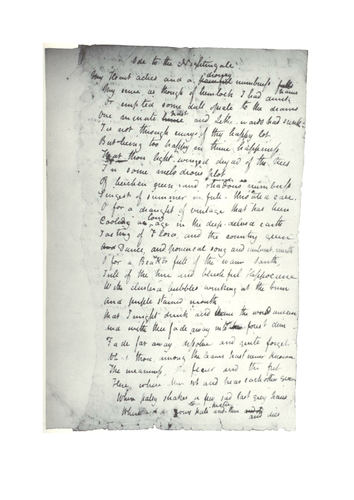 Ode to the Nightingale
My Heart aches and a drowsy numbness falls
My sense as though of hemlock I had drunk
Or emptied some dull opiate to the drains
One minute past and Lethe-wards had sunk
Tis not through envy of thy happy lot
But being too happy in thine happiness
That thou light-winged dryad of the trees
In some melodious plot
Of beechen green and shadows numberless
Singest of summer in full-throated ease.
O for a draught of vintage that has been
Cooling an age in the deep-delved earth
Tasting of Flora and the country green
And Dance, and provencal song and sunburnt mirth
O for a Beaker full of the warm South,
Full of the true and blushful Hippocrene
With clustered bubbles winking at the brim
and purple stained mouth
that I might drink and leave the world unseen
and with thee fade away into forest dim
Fade far away dissolve and quite forget
What thou among the leaves hast never known
The weariness, the fever and the fret
Here, where Men sit and hear each other groan
Where palsy shakes a few sad last grey hairs
Where youth grows pale and thin and dies